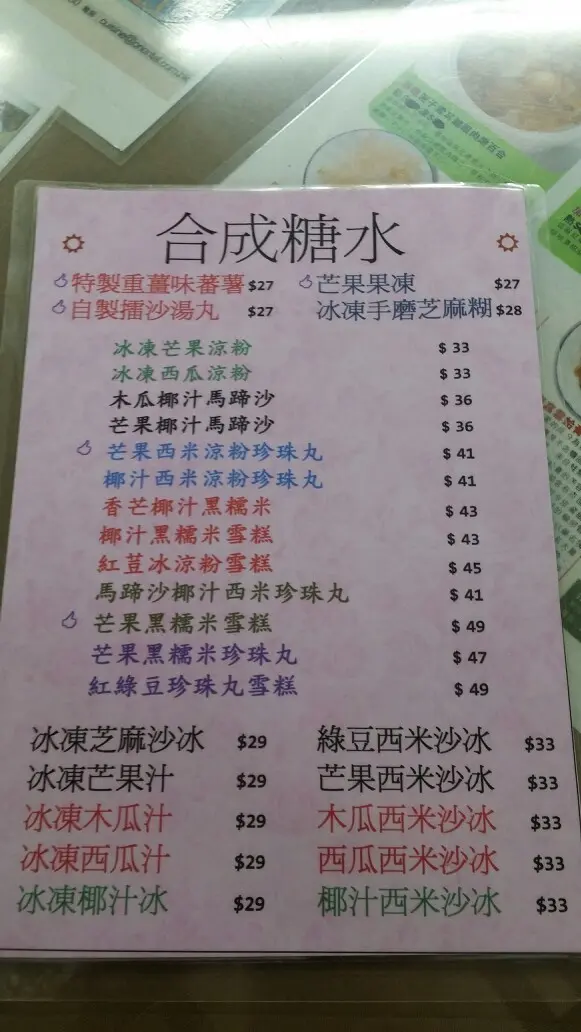 合成糖水
特製重薑味蕃薯 $27 芒果果凍 $27
自製擂沙湯丸 $27 冰凍手磨芝麻糊 $28
冰凍芒果涼粉 $ 33
冰凍西瓜涼粉 $ 33
木瓜椰汁馬蹄沙 $ 36
芒果椰汁馬蹄沙 $ 36
芒果西米涼粉珍珠丸 $ 41
椰汁西米涼粉珍珠丸 $ 41
香芒椰汁黑糯米 $ 43
椰汁黑糯米雪糕 $ 43
紅荳冰涼粉雪糕 $ 45
馬蹄沙椰汁西米珍珠丸 $ 41
芒果黑糯米雪糕 $ 49
芒果黑糯米珍珠丸 $ 47
紅綠豆珍珠丸雪糕 $ 49
冰凍芝麻沙冰 $29 綠豆西米沙冰 $33
冰凍芒果汁 $29 芒果西米沙冰 $33
冰凍木瓜汁 $29 木瓜西米沙冰 $33
冰凍西瓜汁 $29 西瓜西米沙冰 $33
冰凍椰汁冰 $29 椰汁西米沙冰 $33